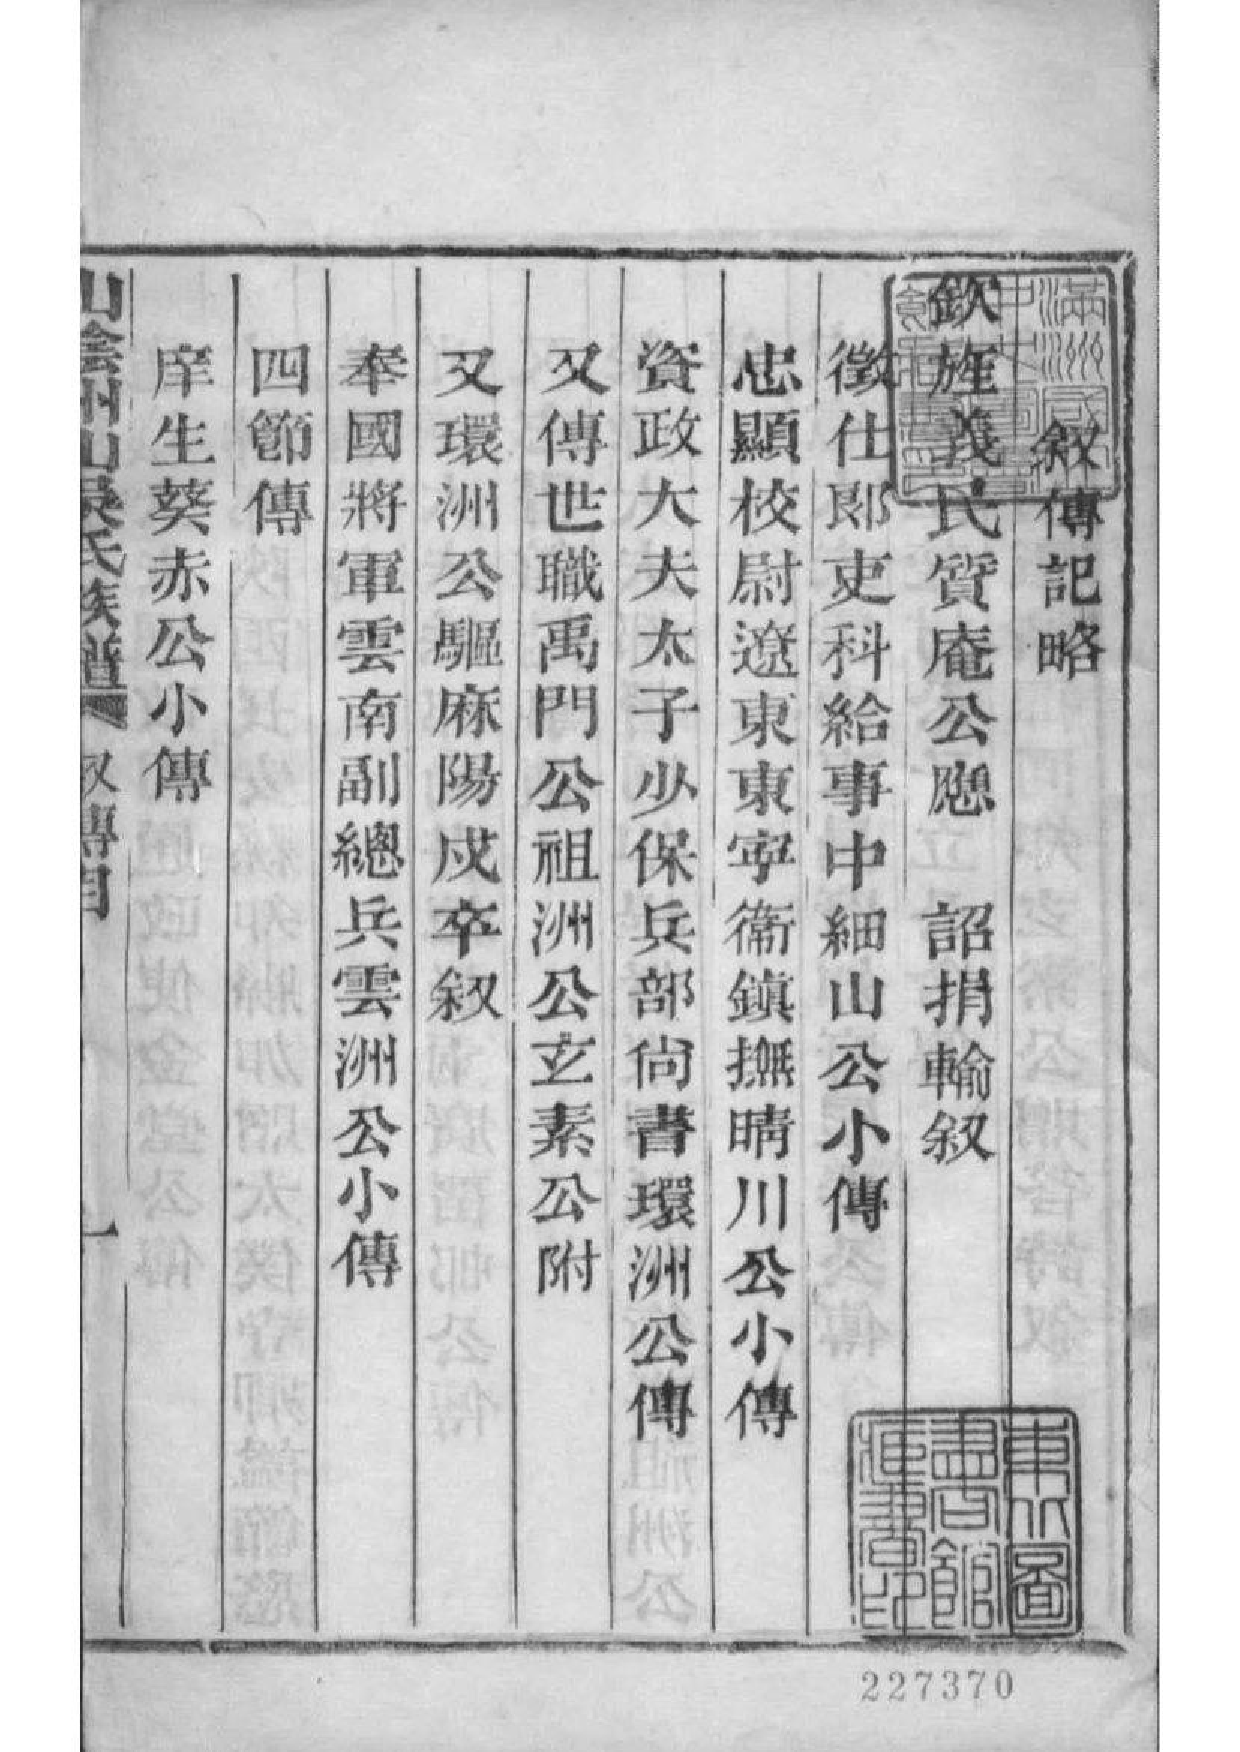 敘傳記略
欽旌義民質庵公應　詔捐輸叙
徵仕郎吏科給事中細山公小傳
忠顯校尉遼東東寧衞鎮撫晴川公小傳
資政大夫太子少保兵部尚書環洲公傳
又傳世職禹門公祖洲公玄素公附
又環洲公驅麻陽戍卒叙
奉國將軍雲南副總兵雲洲公小傳
四節傳
庠生葵赤公小傳
山陰州山吳氏族譜　叙傳目　一
東北圖
書館
所藏印
227370